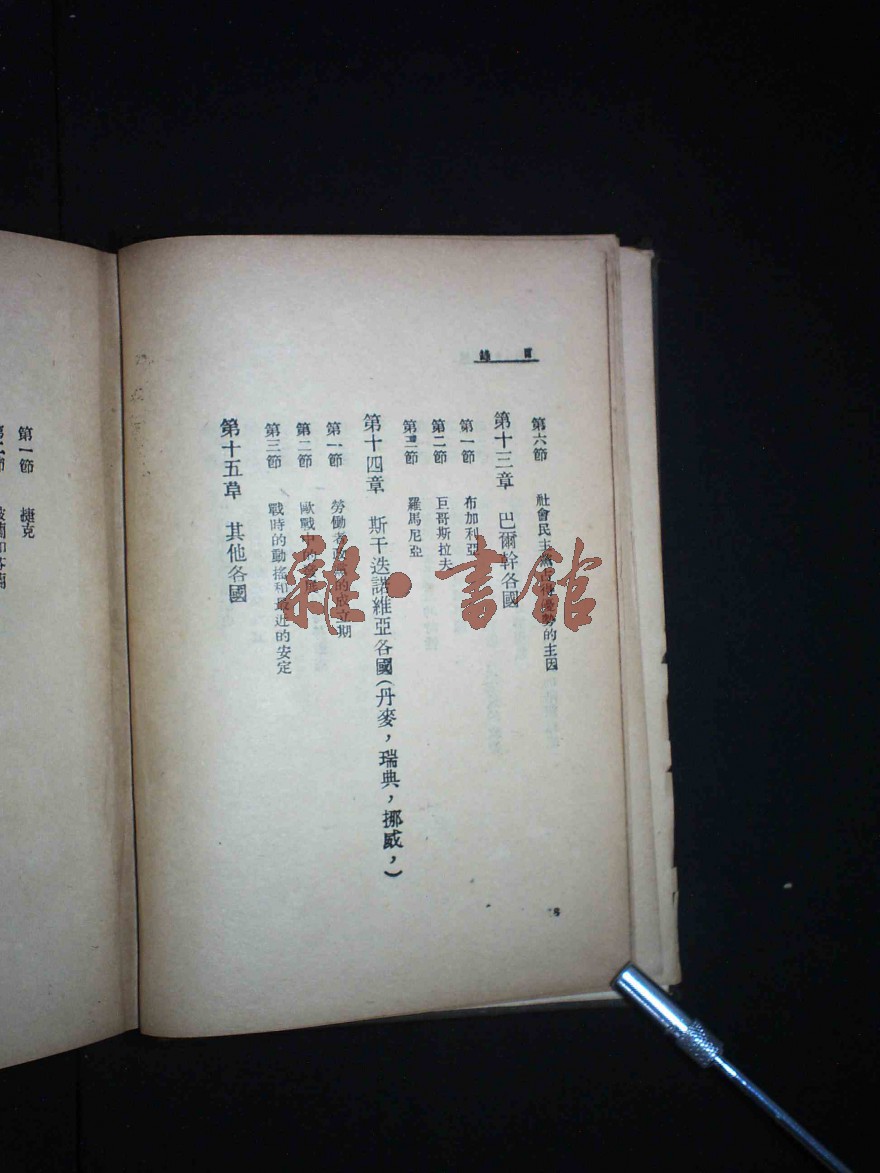 目錄
第六節 社會民主黨占得優勢的主因
第十三章 巴爾幹各國
第一節 布加利亞
第二節 巨哥斯拉夫
第三節 羅馬尼亞
第十四章 斯干迭諾維亞各國(丹麥,瑞典,挪威,)
第一節 勞働者政黨的成立期
第二節 歐戰中的
第三節 戰時的動搖和最近的安定
第十五章 其他各國
6
第一節 捷克
第二節 波蘭和芬蘭
雜·書館